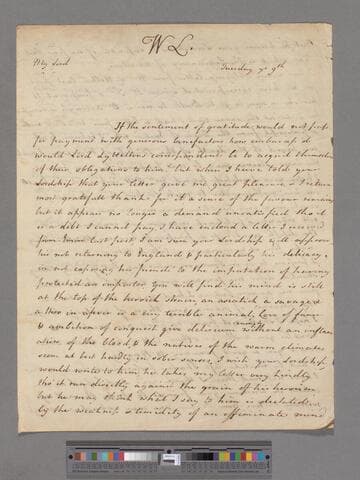 W L.
My Lord
Tuesday ye 9th
If the sentiment of gratitude would not pass
for payment with generous benefactors how embarass'd
would Lord Lyttelton's correspondents be to acquit themselves
of their obligations to him but when I have told your
Lordship that your letter gave me great pleasure & return
most gratefull thanks for it a sense of the favour remains
but it appears no longer a demand unsatisfied tho it
is a debt I cannot pay, I have inclosed a letter I received
from last post. I am sure your Lordship will approve
his not returning to England & particularly his delicacy
in not exposing his friends to the imputation of having
protected an impostor. You will find his mind is still
at the top of the heroick strain, an asiatick & savage
a Hero in is a very terrible animal, love of fame
& ambition of conquest give delirium without an inflam
ation of the blood, & the natives of the warm climates
seem at best hardly in sober sense, I wish your Lordship
would write to him he takes my letter very kindly
tho it ran directly against the grain of his heroism
but he may think what I say to him is dictated
by the weakness & timidity of an effeminate mind